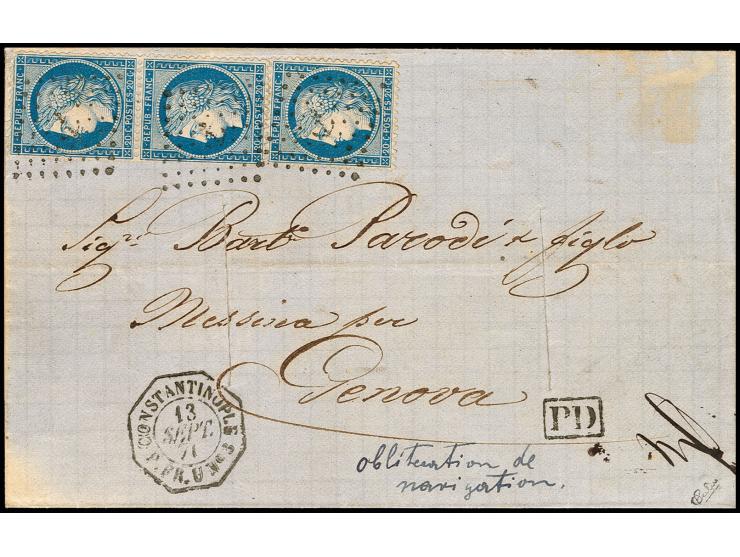 REPUB·FRANC· REPUB·FRANC· REPUB·FRANC·
20·C·POSTES·20·C· 20·C·POSTES·20·C· 20·C·POSTES·20·C·
Sigri Barto Parodi & figlo
Messina per
Genova
CONSTANTINOPLE
13
SEPT.
71
P. FR. U No 3
PD
oblitération de
navigation.